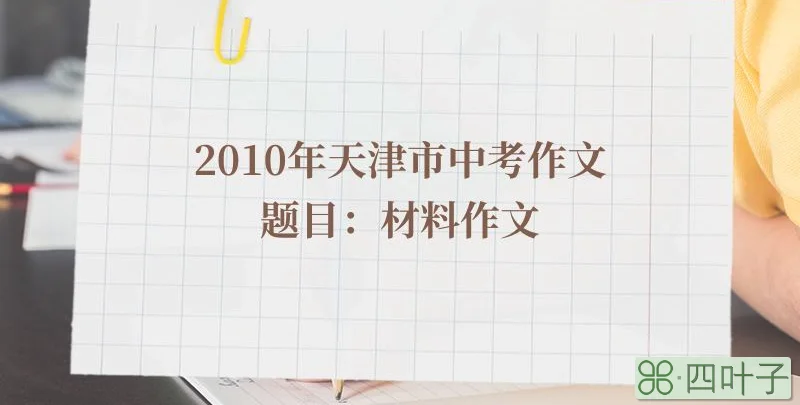 2010年天津市中考作文
题目：材料作文
四叶子